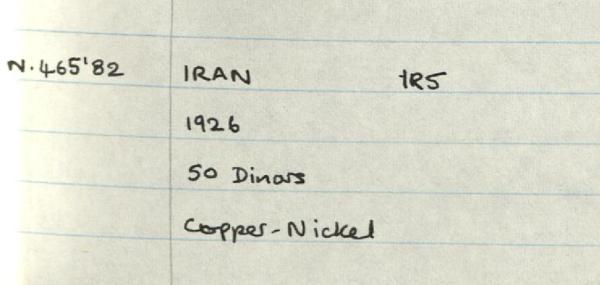 N.465'82 IRAN IR5
1926
50 Dinars
Copper-Nickel